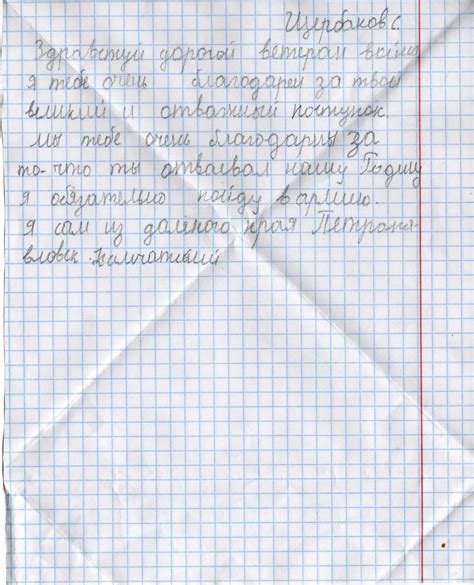 Щербаков с.
Здравствуй дорогой ветеран войны
я тебе очень благодарен за твой
великий и отважный поступок.
мы тебе очень благодарны за
то-что ты отваевал нашу Родину
я обязательно пойду в армию.
я сам из далёкого края Петропа-
вловск-Камчатский